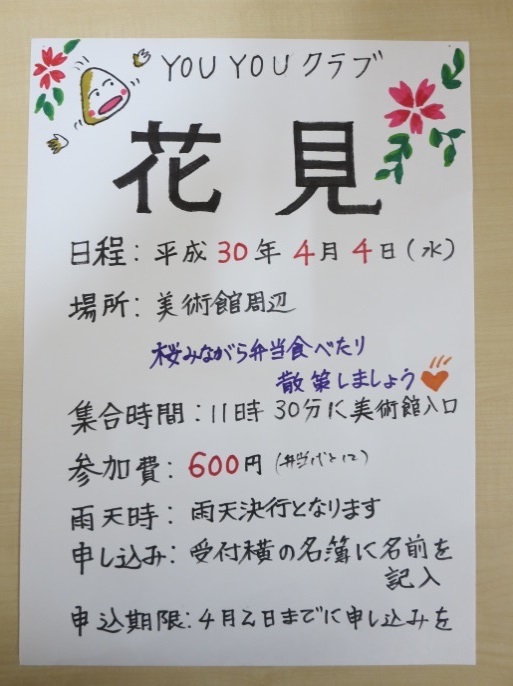 YOU YOUクラブ
花見
日程：平成30年4月4日(水)
場所：美術館周辺
桜みながら弁当食べたり
散策しましょう
集合時間：11時30分に美術館入口
参加費：600円(弁当代として)
雨天時：雨天決行となります
申し込み：受付横の名簿に名前を
記入
申込期限：4月2日までに申し込みを